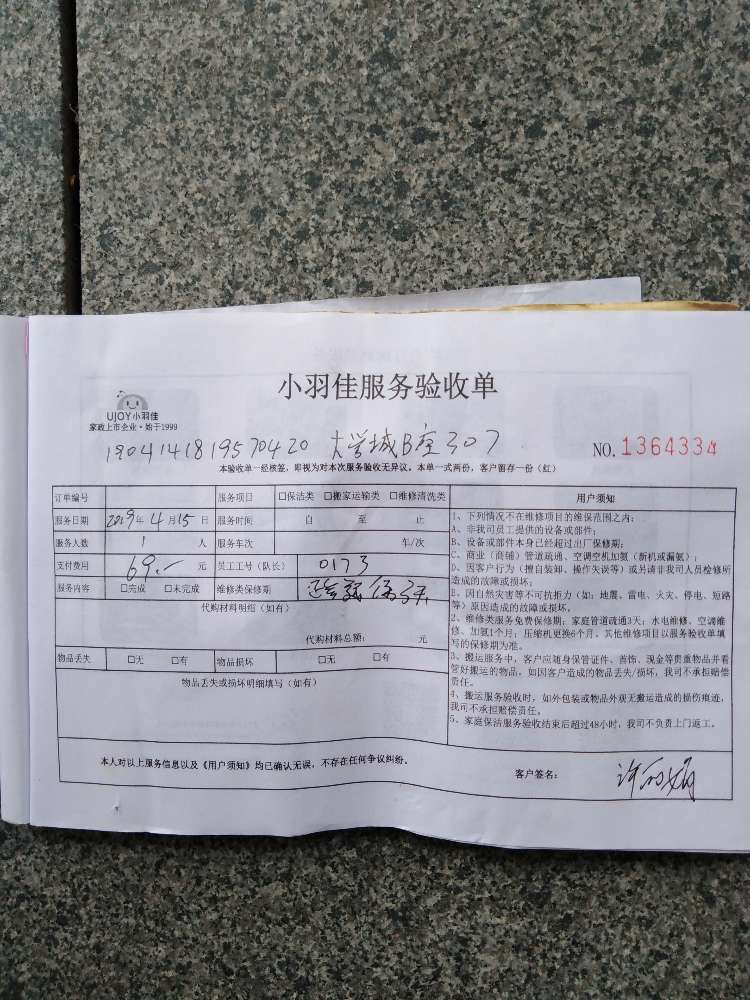 小羽佳服务验收单
UJOY小羽佳
家政上市企业·始于1999
1904141819570420 大学城B座307
NO. 1364334
本验收单一经核签，即视为对本次服务验收无异议。本单一式两份，客户留存一份（红）
订单编号 服务项目 □保洁类 □搬家运输类 □维修清洗类
服务日期 2019年4月15日 服务时间 自 至 止
服务人数 1 人 服务车次 车/次
支付费用 69.- 元 员工工号（队长） 0173
服务内容 □完成 □未完成 维修类保修期
代购材料明细（如有）
代购材料总额： 元
物品丢失 □无 □有 物品损坏 □无 □有
物品丢失或损坏明细填写（如有）
用户须知
1、下列情况不在维修项目的维保范围之内：
A、非我司员工提供的设备或部件；
B、设备或部件本身已经超过出厂保修期；
C、商业（商铺）管道疏通、空调空机加氟（新机或漏氟）；
D、因客户行为（擅自装卸、操作失误等）或另请非我司人员检修所
造成的故障或损坏；
E、因自然灾害等不可抗拒力（如：地震、雷电、火灾、停电、短路
等）原因造成的故障或损坏。
2、维修类服务免费保修期：家庭管道疏通3天；水电维修、空调维
修、加氟1个月；压缩机更换6个月。其他维修项目以服务验收单填
写的保修期为准。
3、搬运服务中，客户应随身保管证件、首饰、现金等贵重物品并看
管好搬运的物品，如因客户造成的物品丢失/损坏，我司不承担赔偿
责任。
4、搬运服务验收时，如外包装或物品外观无搬运造成的损伤痕迹，
我司不承担赔偿责任。
5、家庭保洁服务验收结束后超过48小时，我司不负责上门返工。
本人对以上服务信息以及《用户须知》均已确认无误，不存在任何争议纠纷。
客户签名：